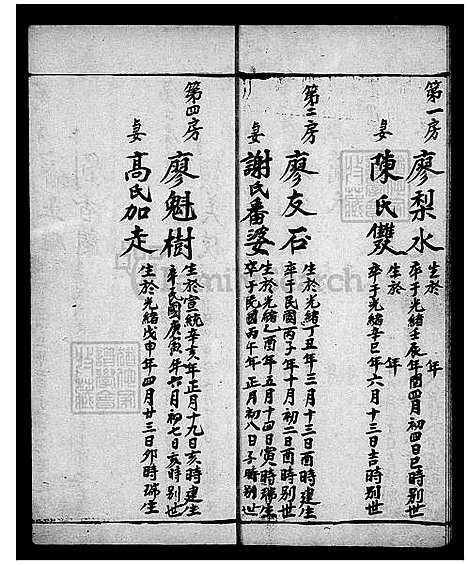 第一房
廖梨水
生於　年
卒于光緒壬辰年四月初四日巳時別世
妣
陳氏雙
生於　年
卒于光緒辛巳年六月十三日吉時別世
第二房
廖友石
生於光緒丁丑年三月十三日酉時建生
卒于民國丙子年十月初二日酉時別世
妣
謝氏番婆
生於光緒乙酉年五月十四日寅時瑞生
卒于民國丙午年正月初八日子時別世
第四房
廖魁樹
生於宣統辛亥年正月十九日亥時建生
卒民國庚寅年六月初七日亥時別世
妣
高氏加走
生於光緒戊申年四月廿三日卯時瑞生